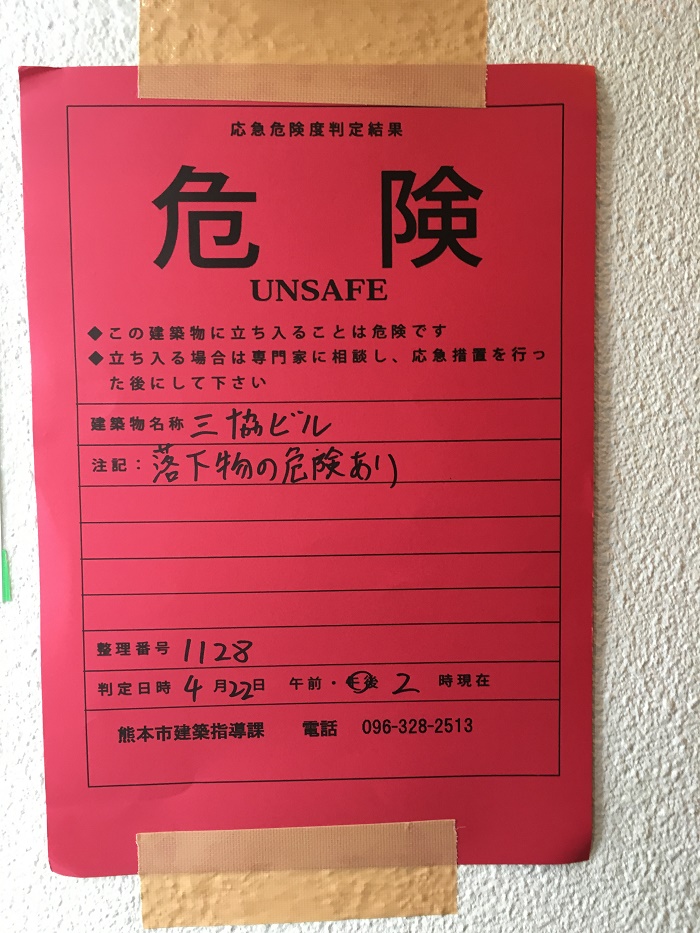 応急危険度判定結果
危 険
UNSAFE
◆この建築物に立ち入ることは危険です
◆立ち入る場合は専門家に相談し、応急措置を行っ
た後にして下さい
建築物名称 三協ビル
注記：落下物の危険あり
整理番号 1128
判定日時 4月22日 午前・午後 2 時現在
熊本市建築指導課 電話 096-328-2513